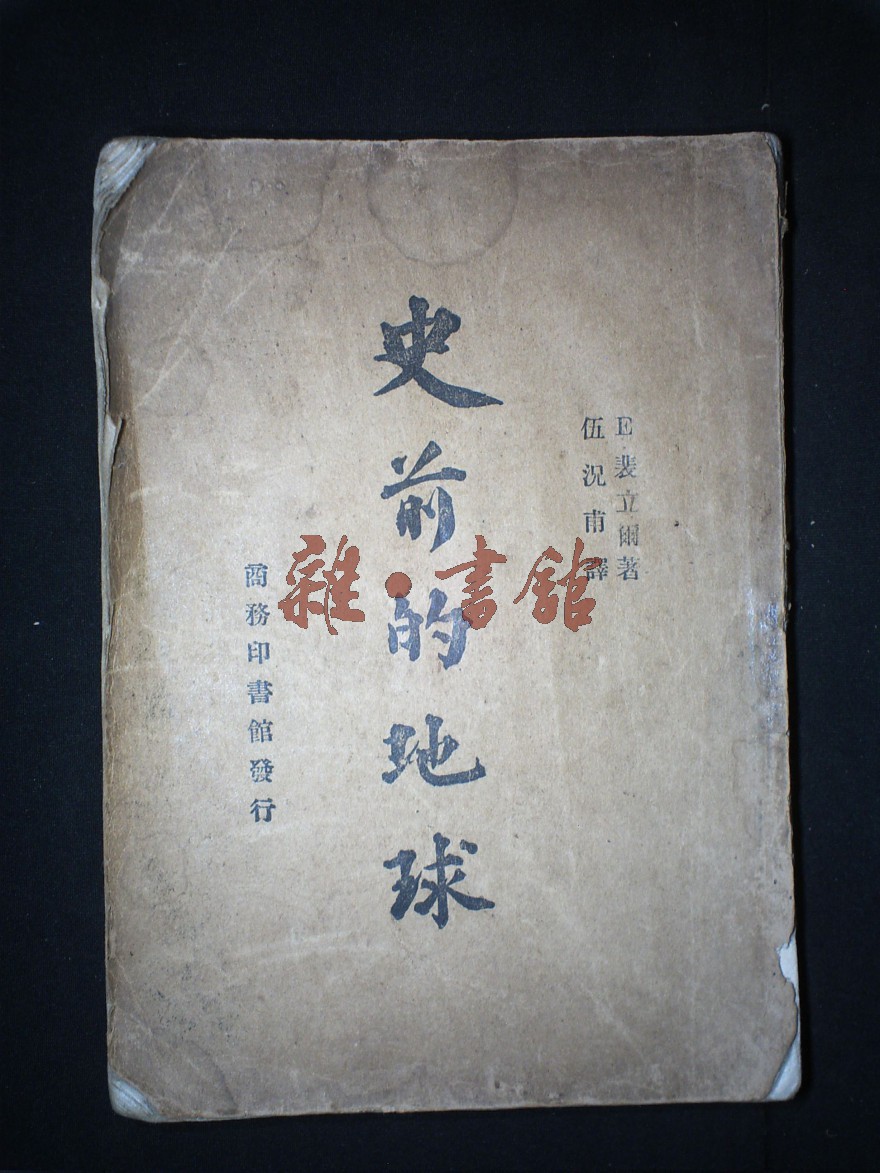 E·裴立爾著
伍況甫譯
史前的地球
商務印書館發行
雜·書館